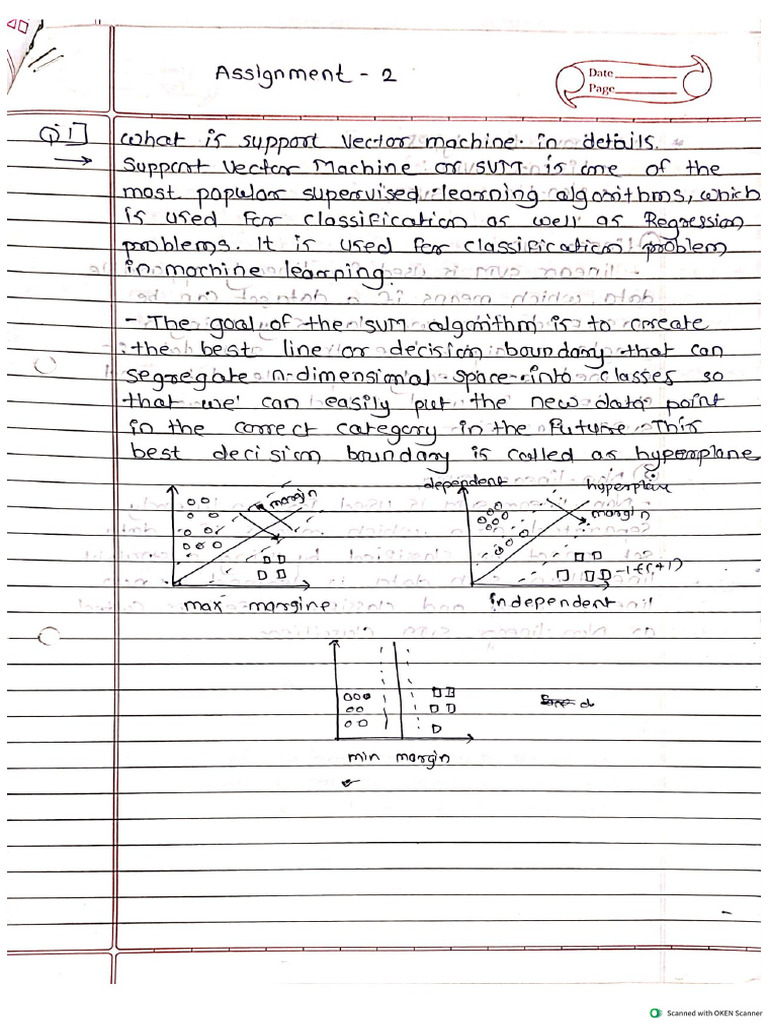 Assignment - 2
Date
Page
Q1] What is support vector machine. in details.
→ Support Vector Machine or SVM is one of the
most popular supervised learning algorithms, which
is used for classification as well as Regression
problems. It is used for classification problem
in machine learning.
- The goal of the SVM algorithm is to create
the best line or decision boundary that can
segregate n-dimensional space into classes so
that we can easily put the new data point
in the correct category in the future. This
best decision boundary is called as hyperplane
margin
max margine
dependent
hyperplane
margin
independent
min margin
Scanned with OKEN Scanner